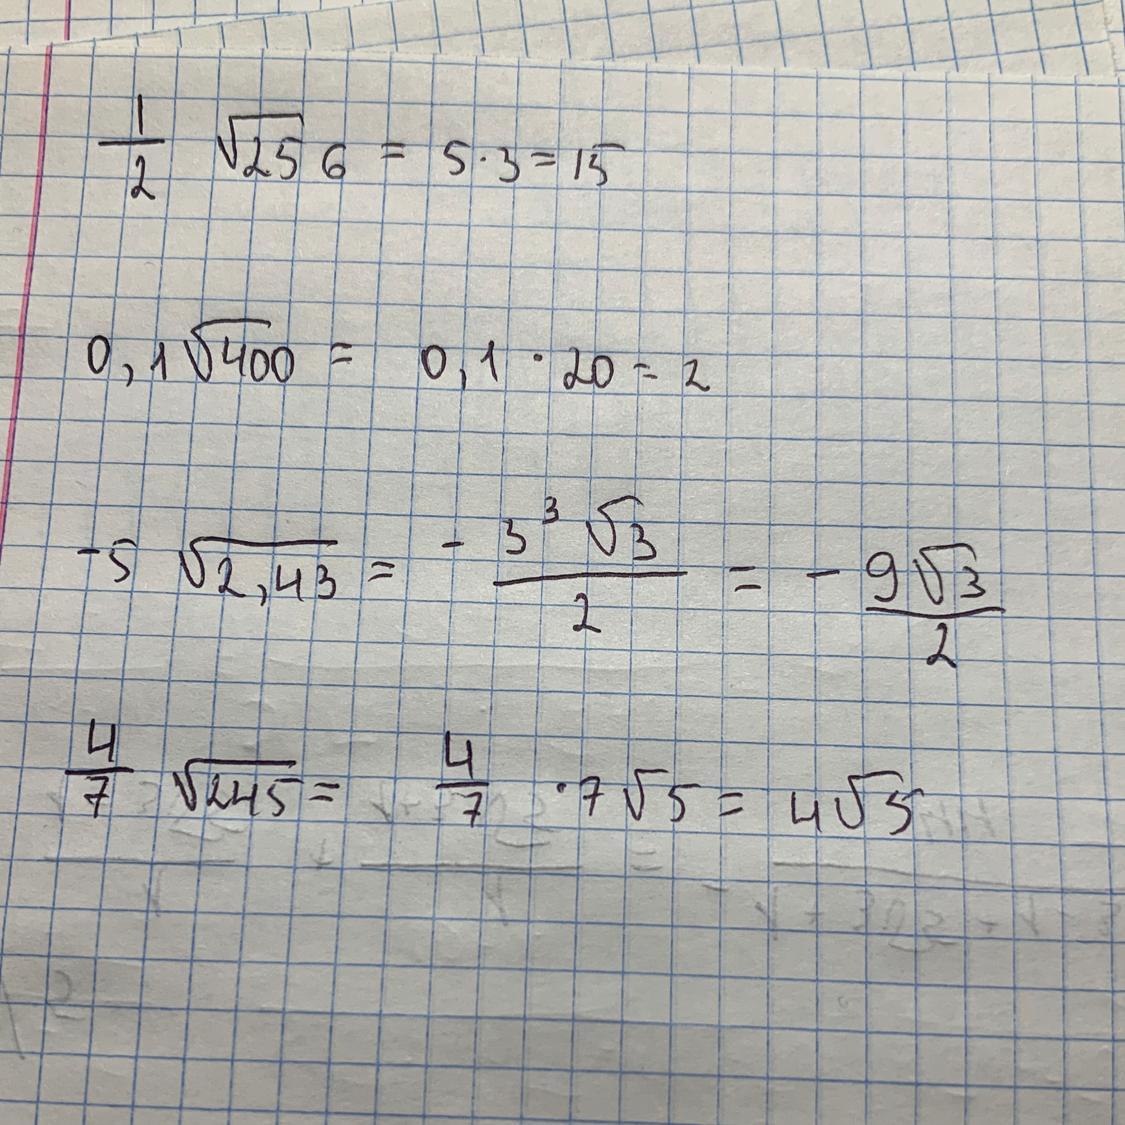 1/2 √25 6 = 5·3=15
0,1√400 = 0,1 · 20 = 2
-5 √2,43 = - 3³√3/2 = - 9√3/2
4/7 √245 = 4/7 ·7√5 = 4√5